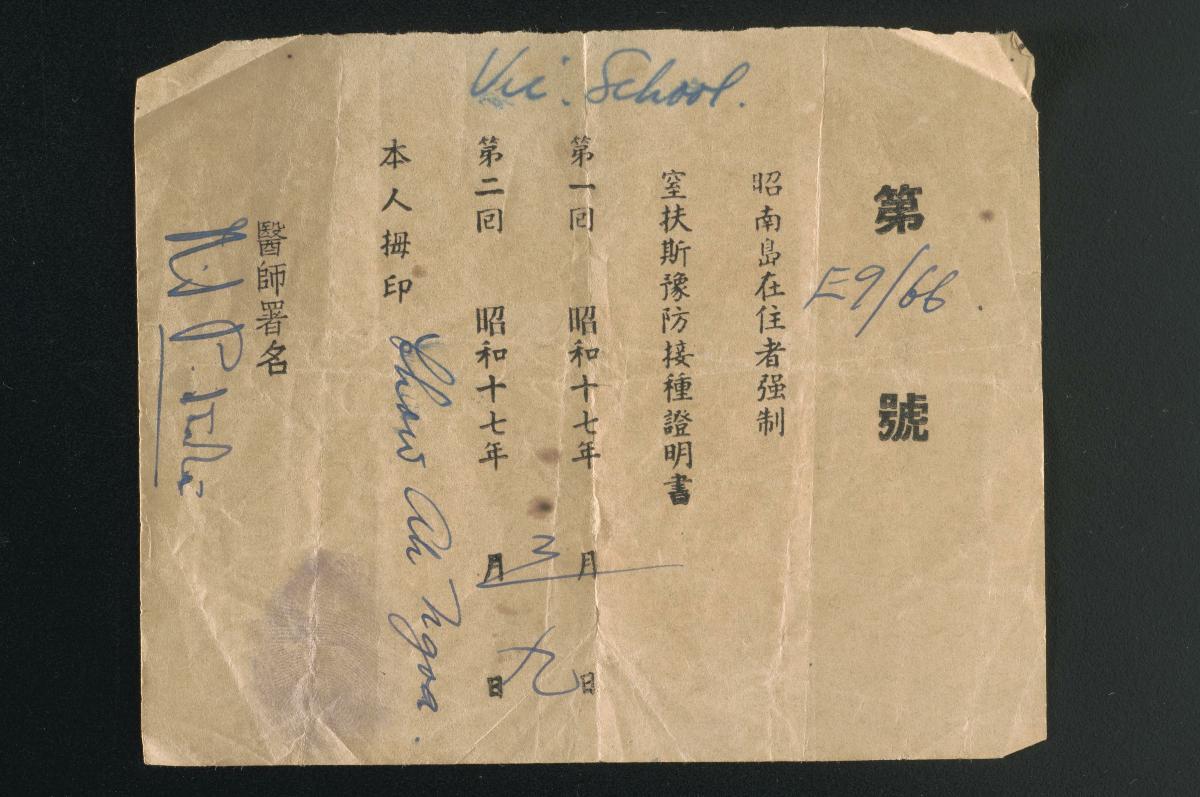 Vic. School.
第 E9/66. 號
昭南島在住者强制
窒扶斯豫防接種證明書
第一回 昭和十七年 三月 九日
第二回 昭和十七年 月 日
本人拇印
Chow Ah Ngoa.
醫師署名